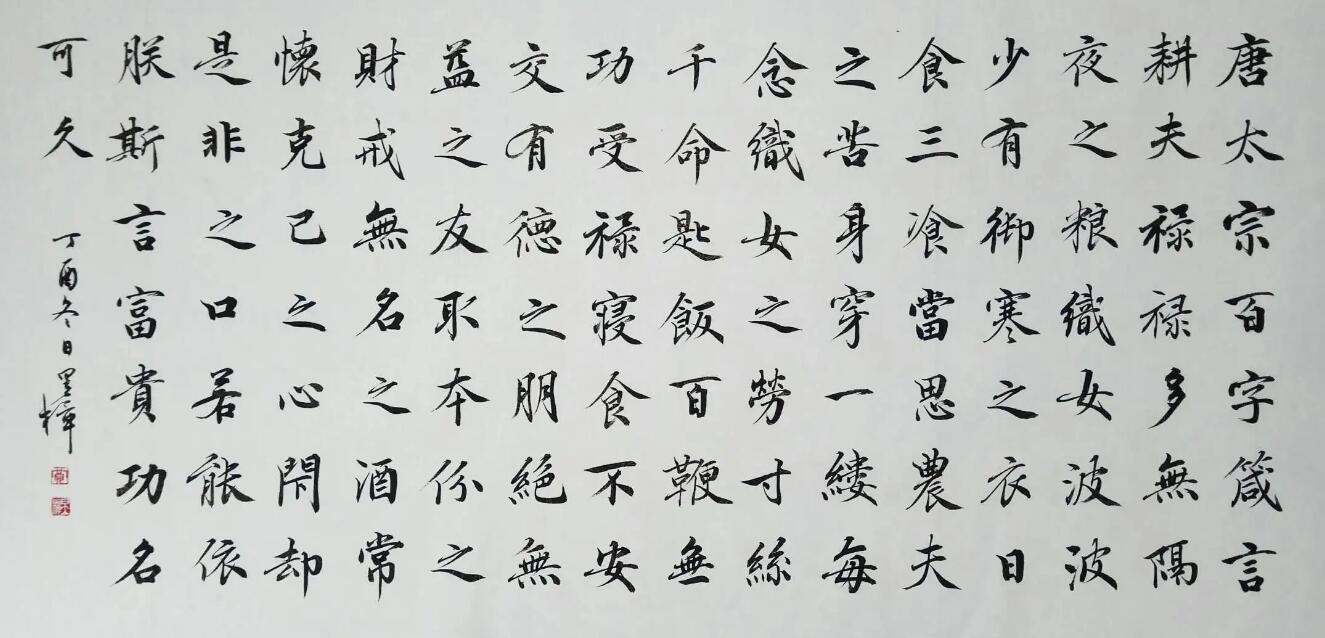 唐太宗百字箴言
耕夫禄禄多無隔
夜之粮織女波波
少有御寒之衣日
食三飡當思農夫
之苦身穿一縷每
念織女之勞寸絲
千命匙飯百鞭無
功受禄寝食不安
交有德之朋絕無
益之友取本份之
財戒無名之酒常
懷克己之心閉却
是非之口若能依
朕斯言富貴功名
可久
丁酉冬日